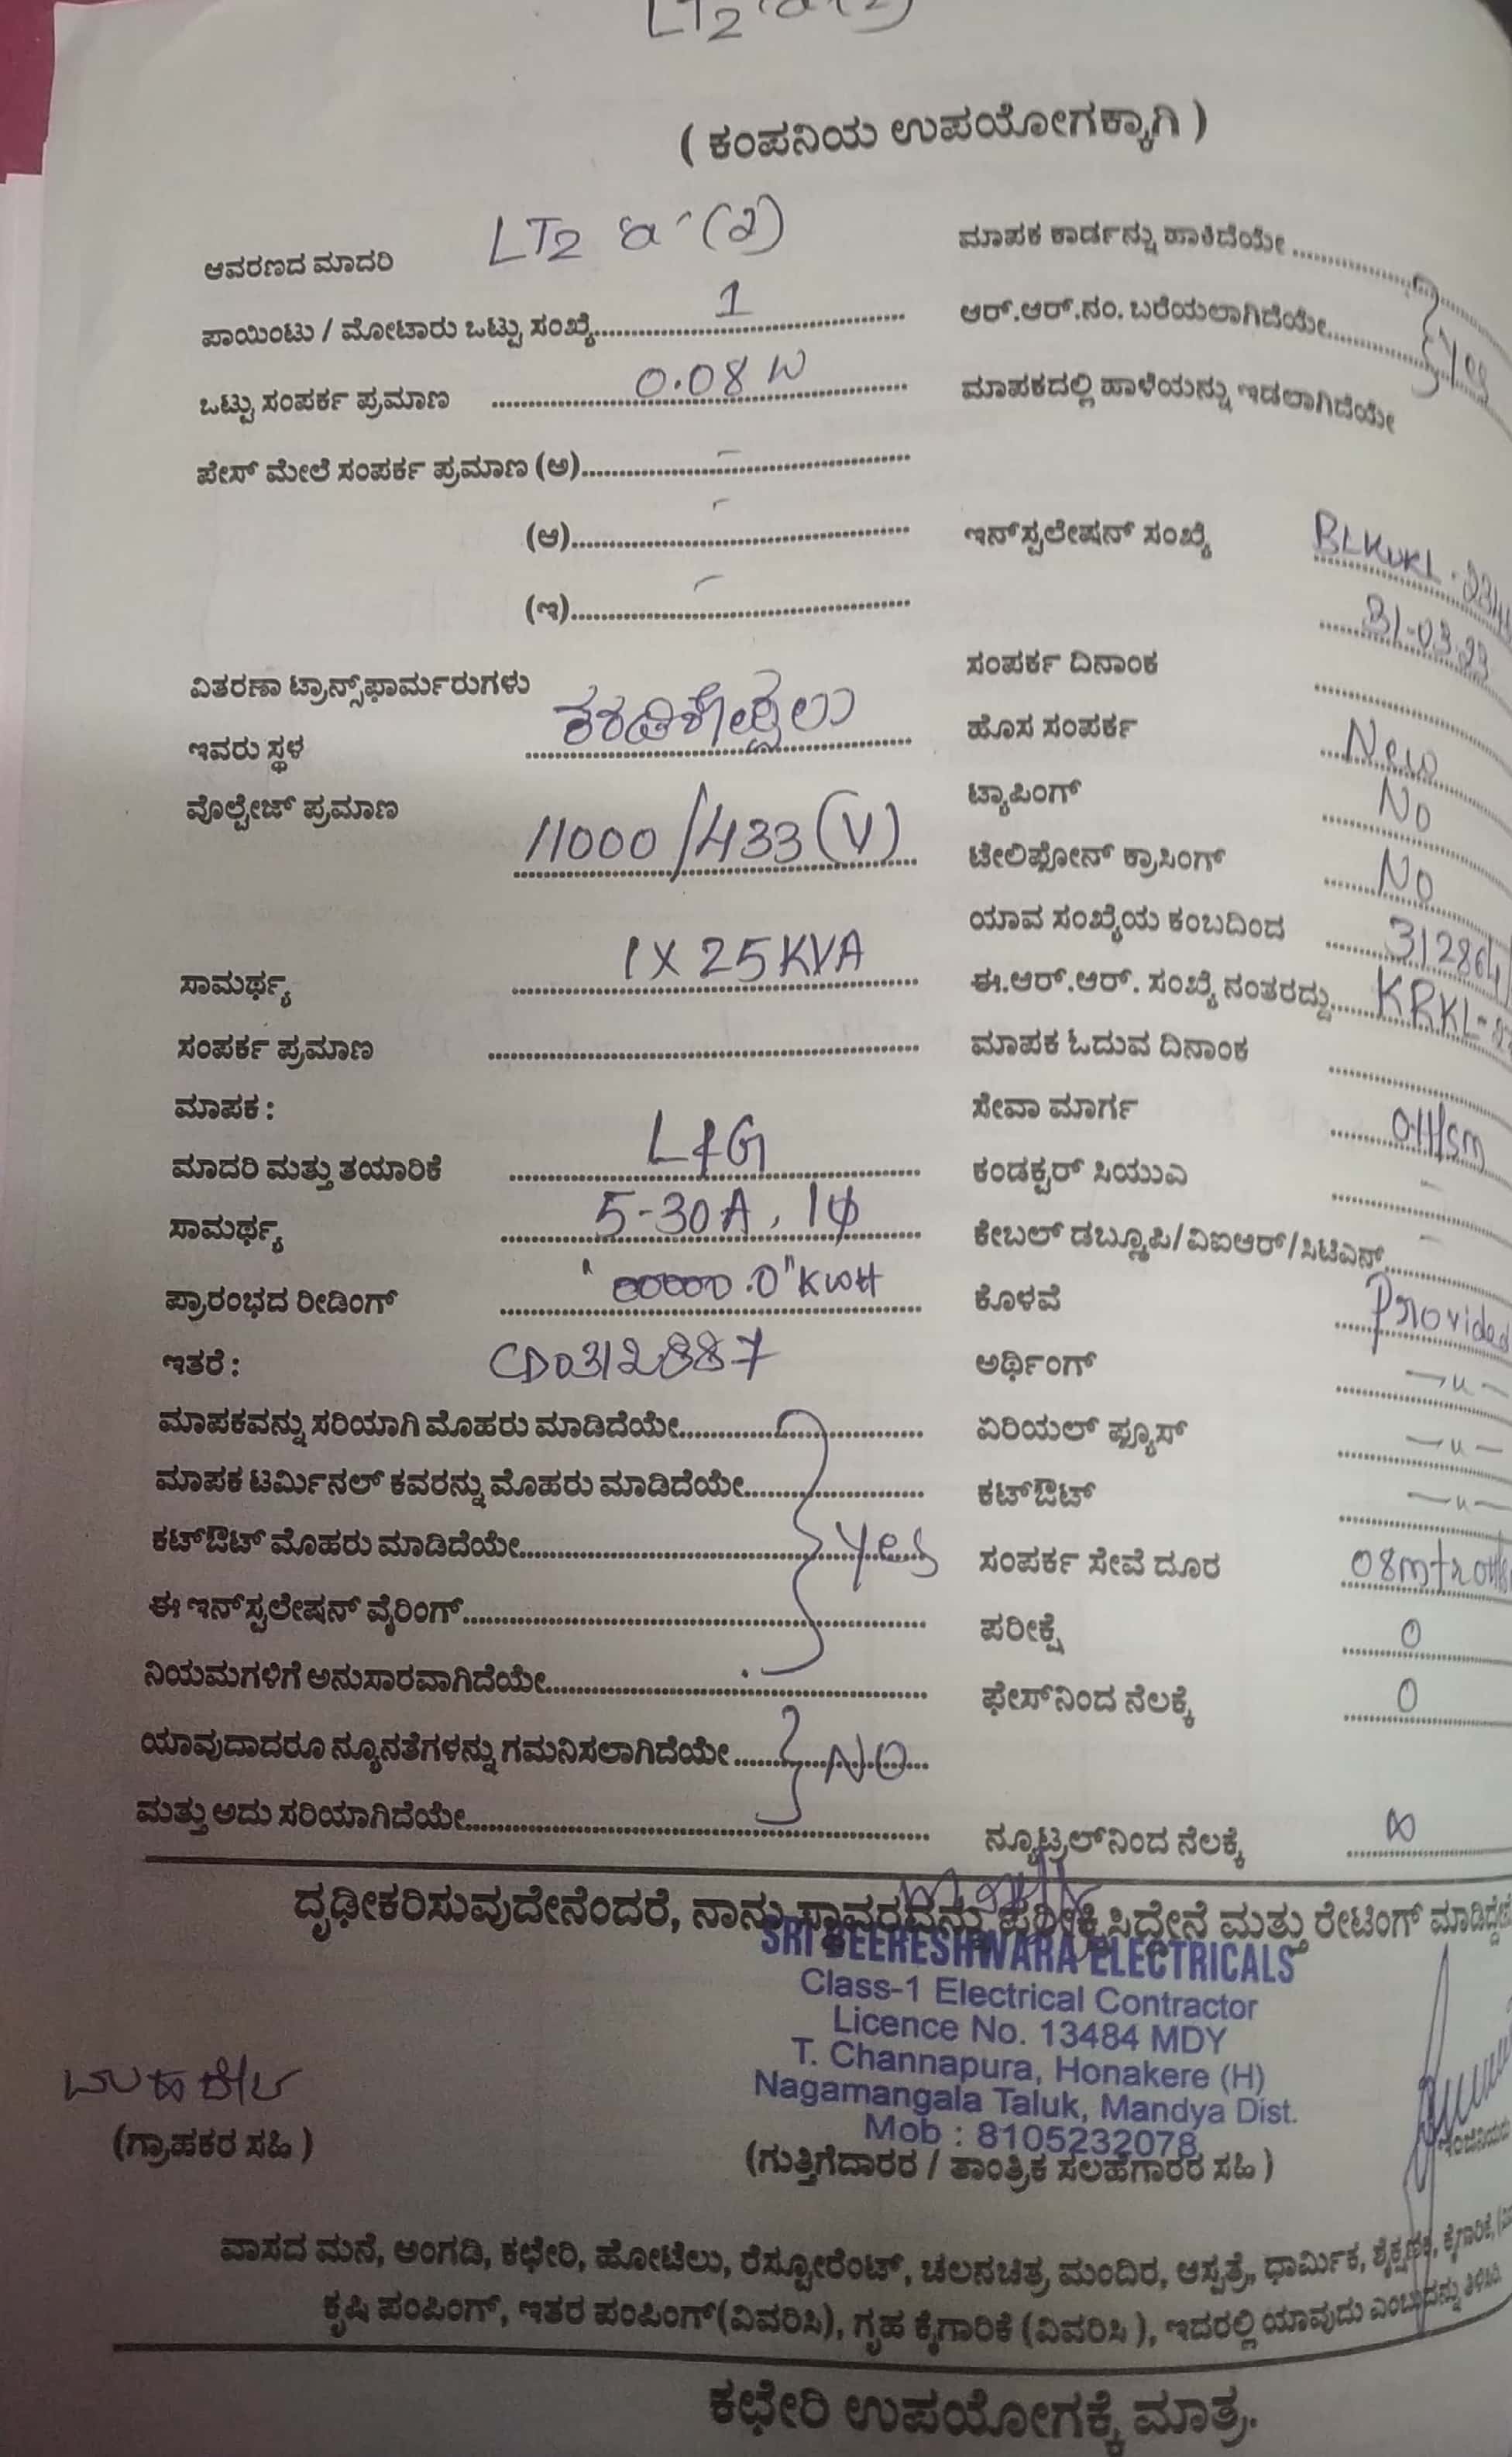 LT2
( ಕಂಪನಿಯ ಉಪಯೋಗಕ್ಕಾಗಿ )
ಆವರಣದ ಮಾದರಿ LT2 'a' (2)
ಪಾಯಿಂಟು / ಮೋಟಾರು ಒಟ್ಟು ಸಂಖ್ಯೆ 1
ಒಟ್ಟು ಸಂಪರ್ಕ ಪ್ರಮಾಣ 0.08 W
ಪೇಸ್ ಮೇಲೆ ಸಂಪರ್ಕ ಪ್ರಮಾಣ (ಅ) -
(ಆ) -
(ಇ) -
ವಿತರಣಾ ಟ್ರಾನ್ಸ್‌ಫಾರ್ಮರುಗಳು
ಇವರು ಸ್ಥಳ
ವೊಲ್ಟೇಜ್ ಪ್ರಮಾಣ 11000/433 (V)
ಸಾಮರ್ಥ್ಯ 1 X 25 KVA
ಸಂಪರ್ಕ ಪ್ರಮಾಣ
ಮಾಪಕ :
ಮಾದರಿ ಮತ್ತು ತಯಾರಿಕೆ L&G
ಸಾಮರ್ಥ್ಯ 5-30A, 1ϕ
ಪ್ರಾರಂಭದ ರೀಡಿಂಗ್ "00000.0" KWH
ಇತರೆ : CD0312887
ಮಾಪಕವನ್ನು ಸರಿಯಾಗಿ ಮೊಹರು ಮಾಡಿದೆಯೇ
ಮಾಪಕ ಟರ್ಮಿನಲ್ ಕವರನ್ನು ಮೊಹರು ಮಾಡಿದೆಯೇ
ಕಟ್‌ಔಟ್ ಮೊಹರು ಮಾಡಿದೆಯೇ Yes
ಈ ಇನ್‌ಸ್ಟಲೇಷನ್ ವೈರಿಂಗ್
ನಿಯಮಗಳಿಗೆ ಅನುಸಾರವಾಗಿದೆಯೇ
ಯಾವುದಾದರೂ ನ್ಯೂನತೆಗಳನ್ನು ಗಮನಿಸಲಾಗಿದೆಯೇ NO
ಮತ್ತು ಅದು ಸರಿಯಾಗಿದೆಯೇ
ಮಾಪಕ ಕಾರ್ಡನ್ನು ಹಾಕಿದೆಯೇ
ಆರ್.ಆರ್.ನಂ. ಬರೆಯಲಾಗಿದೆಯೇ Yes
ಮಾಪಕದಲ್ಲಿ ಹಾಳೆಯನ್ನು ಇಡಲಾಗಿದೆಯೇ
ಇನ್‌ಸ್ಟಲೇಷನ್ ಸಂಖ್ಯೆ
31-03-23
ಸಂಪರ್ಕ ದಿನಾಂಕ
ಹೊಸ ಸಂಪರ್ಕ New
ಟ್ಯಾಪಿಂಗ್ No
ಟೇಲಿಫೋನ್ ಕ್ರಾಸಿಂಗ್ No
ಯಾವ ಸಂಖ್ಯೆಯ ಕಂಬದಿಂದ
ಈ.ಆರ್.ಆರ್. ಸಂಖ್ಯೆ ನಂತರದ್ದು KRKL-
ಮಾಪಕ ಓದುವ ದಿನಾಂಕ
ಸೇವಾ ಮಾರ್ಗ
ಕಂಡಕ್ಟರ್ ಸಿಯುಎ -
ಕೇಬಲ್ ಡಬ್ಲೂಪಿ/ವಿಐಆರ್/ಸಿಟಿಎನ್ -
ಕೊಳವೆ Provided
ಅರ್ಥಿಂಗ್ —"—
ಏರಿಯಲ್ ಫ್ಯೂಸ್ —"—
ಕಟ್‌ಔಟ್ —"—
ಸಂಪರ್ಕ ಸೇವೆ ದೂರ
ಪರೀಕ್ಷೆ 0
ಫೇಸ್‌ನಿಂದ ನೆಲಕ್ಕೆ 0
ನ್ಯೂಟ್ರಲ್‌ನಿಂದ ನೆಲಕ್ಕೆ ∞
ದೃಢೀಕರಿಸುವುದೇನೆಂದರೆ, ನಾನು ಸ್ಥಾವರವನ್ನು ಪರೀಕ್ಷಿಸಿದ್ದೇನೆ ಮತ್ತು ರೇಟಿಂಗ್
SRI BEERESHWARA ELECTRICALS
Class-1 Electrical Contractor
Licence No. 13484 MDY
T. Channapura, Honakere (H)
Nagamangala Taluk, Mandya Dist.
Mob : 8105232078
(ಗ್ರಾಹಕರ ಸಹಿ )
(ಗುತ್ತಿಗೆದಾರರ / ತಾಂತ್ರಿಕ ಸಲಹೆಗಾರರ ಸಹಿ )
ವಾಸದ ಮನೆ, ಅಂಗಡಿ, ಕಛೇರಿ, ಹೋಟೆಲು, ರೆಸ್ಟೋರೆಂಟ್, ಚಲನಚಿತ್ರ ಮಂದಿರ, ಆಸ್ಪತ್ರೆ, ಧಾರ್ಮಿಕ, ಶೈಕ್ಷಣಿಕ, ಕೈಗಾರಿಕೆ,
ಕೃಷಿ ಪಂಪಿಂಗ್, ಇತರ ಪಂಪಿಂಗ್(ವಿವರಿಸಿ), ಗೃಹ ಕೈಗಾರಿಕೆ (ವಿವರಿಸಿ ), ಇದರಲ್ಲಿ ಯಾವುದು ಎಂಬುದನ್ನು ತಿಳಿಸಿ
ಕಛೇರಿ ಉಪಯೋಗಕ್ಕೆ ಮಾತ್ರ.